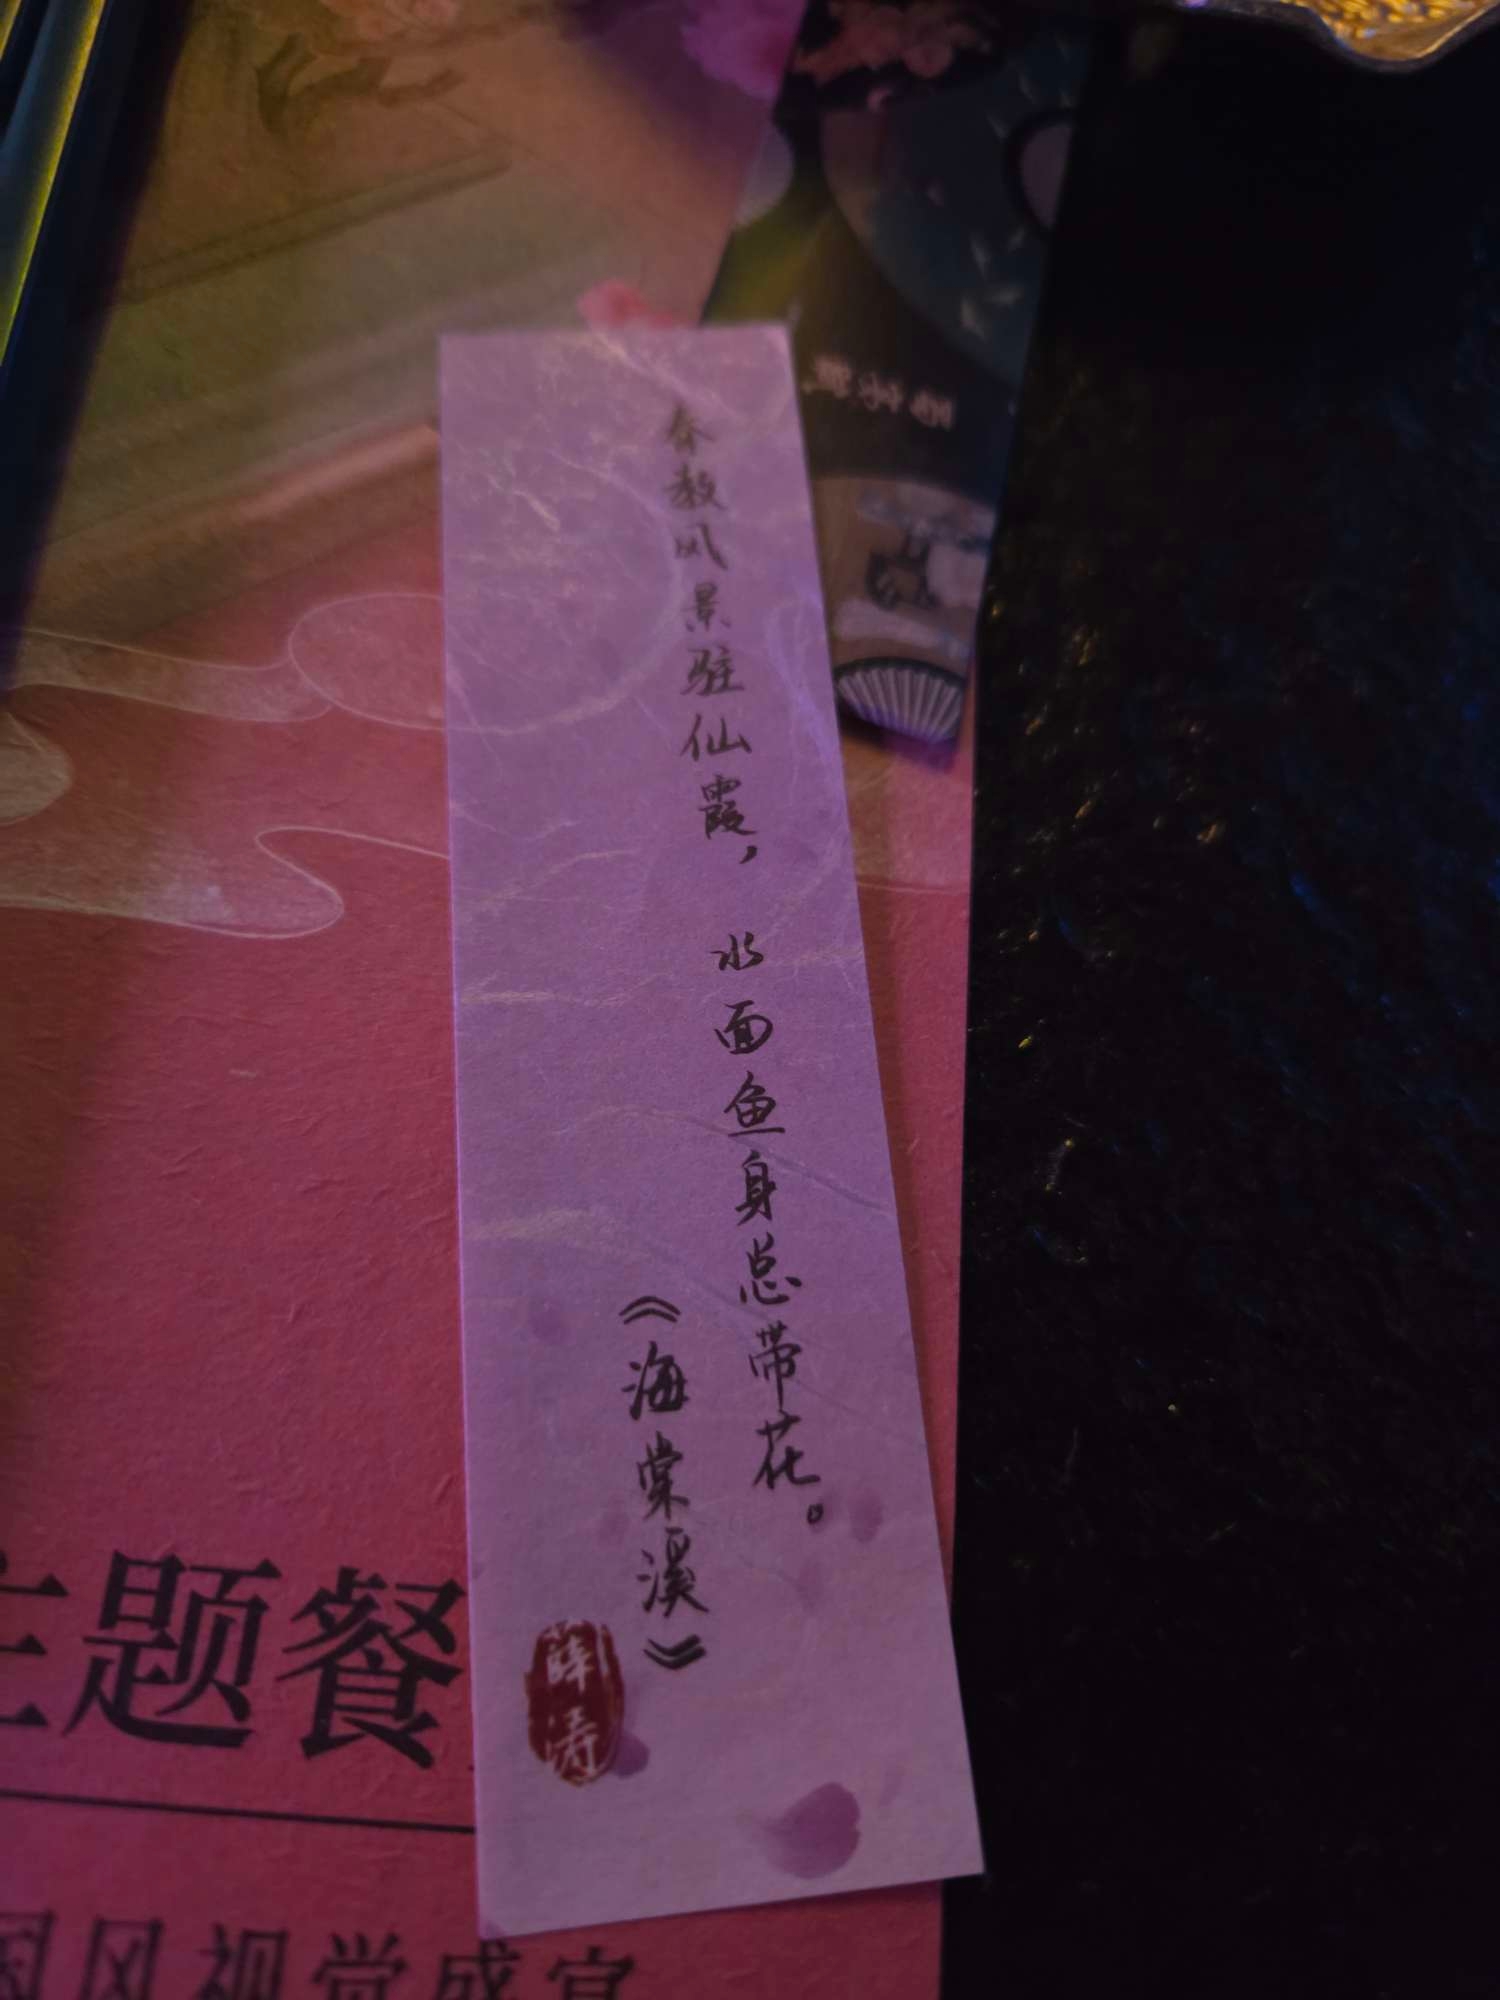 春教风景驻仙霞，
水面鱼身总带花。
《海棠溪》
薛涛
主题餐
国风视觉盛宴